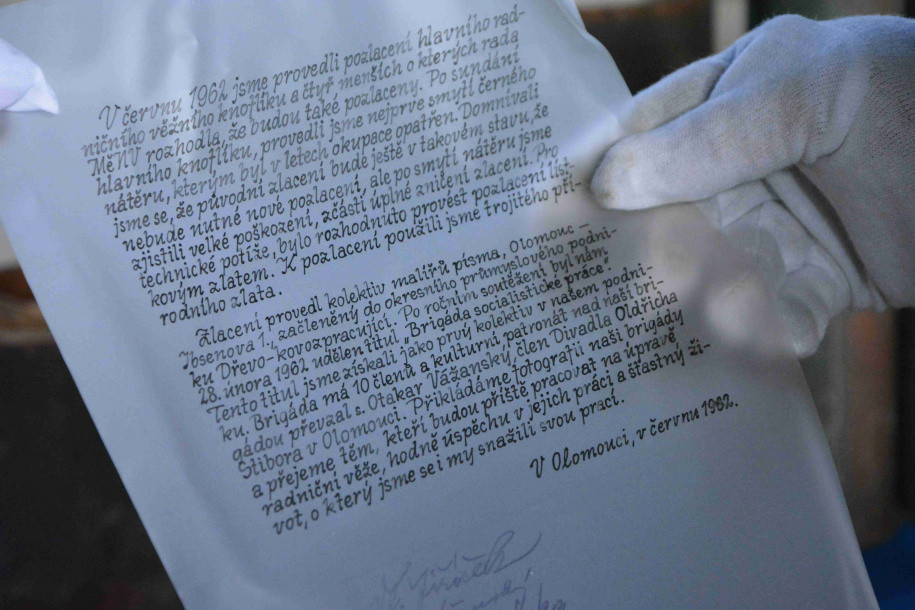 V červnu 1962 jsme provedli pozlacení hlavního rad-
ničního věžního knoflíku a čtyř menších o kterých rada
MěNV rozhodla, že budou také pozlaceny. Po sundání
hlavního knoflíku, provedli jsme nejprve smytí černého
nátěru, kterým byl v letech okupace opatřen. Domnívali
jsme se, že původní zlacení bude ještě v takovém stavu, že
nebude nutné nové pozlacení, ale po smytí nátěru jsme
zjistili velké poškození, zčásti úplné zničení zlacení. Pro
technické potíže, bylo rozhodnuto provést pozlacení líst-
kovým zlatem. K pozlacení použili jsme trojitého pří-
rodního zlata.
Zlacení provedl kolektiv malířů písma, Olomouc –
Ibsenova 1., začleněný do okresního průmyslového podni-
ku Dřevo-kovozpracující. Po ročním soutěžení byl nám
28. února 1962 udělen titul "Brigáda socialistické práce".
Tento titul jsme získali jako prvý kolektiv v našem podni-
ku. Brigáda má 10 členů a kulturní patronát nad naší bri-
gádou převzal s. Otakar Vážanský, člen Divadla Oldřicha
Stibora v Olomouci. Přikládáme fotografii naší brigády
a přejeme, těm, kteří budou příště pracovat na úpravě
radniční věže, hodně úspěchu v jejich práci a šťastný ži-
vot, o který jsme se i my snažili svou prací.
V Olomouci, v červnu 1962.